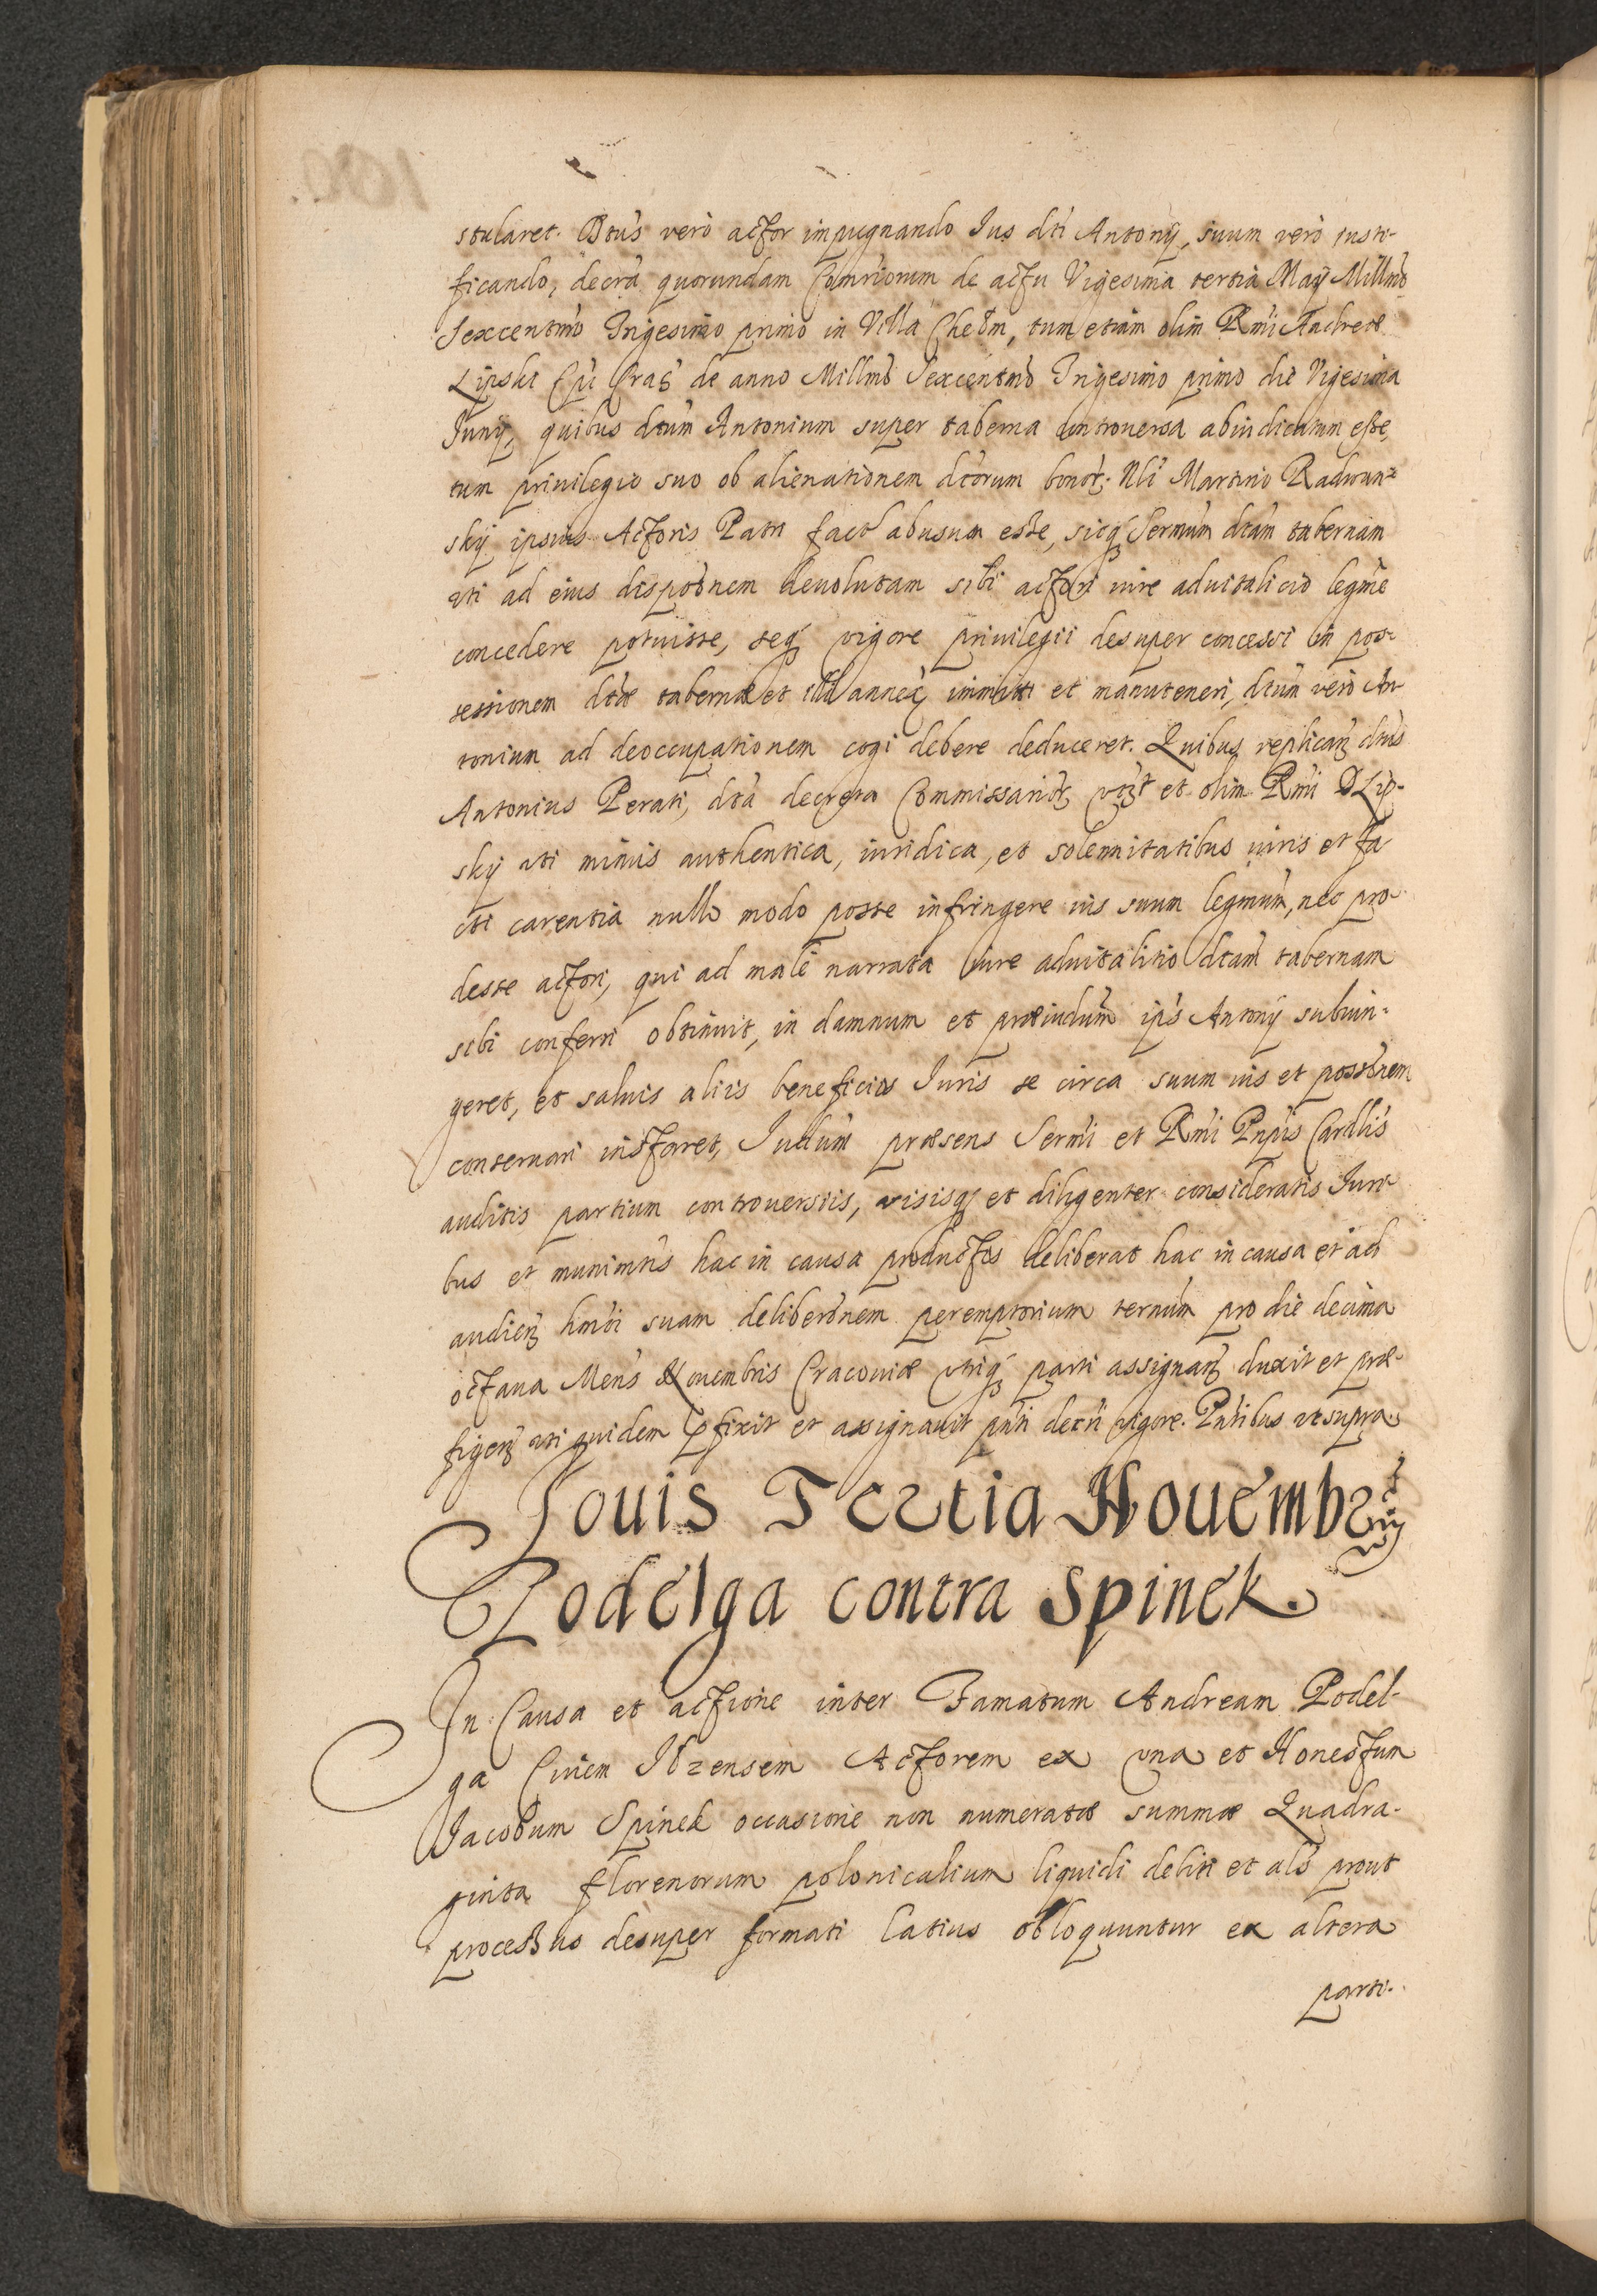 stularet. Dtus verò actor impugnando Ius dti Antonÿ, suum verò iusti-
ficando, decra quorundam Comriorum de actu Vigesima tertia Maÿ Millmo
Sexcentmo Trigesimo primo in Villa Chelm, tum etiam olim Rmi Andreæ
Lipski Epi Crac de anno Millmo Sexcentmo Trigesimo primo die Vigesima
Junÿ, quibus dtum Antonium super taberna controuersa abiudicatum esse,
tum priuilegio suo ob alienationem dtorum bonor. Nli Martino Radwan-
skÿ ipsius Actoris Patri fact abusum esse, sicq Sermum dtam tabernam
uti ad eius disponem deuolutam sibi actori iure aduitalicio legme
concedere potuisse, seq vigore priuilegii desuper concessi in pos-
sessionem dtæ tabernæ et illi annex immitti et manuteneri, dtum verò An-
tonium ad deoccupationem cogi debere deduceret. Quibus replican dtus
Antonius Perati, dta decreta Commissarior, vt et olim Rmi D Lip-
skÿ uti minus authentica, iuridica, et solemnitatibus iuris et fa-
cti carentia nullo modo posse infringere ius suum legmum, nec pro-
desse actori, qui ad malè narrata iure aduitalitio dtam tabernam
sibi conferri obtinuit, in damnum et præiudum ips Antonÿ subiun-
geret, et saluis aliis beneficiis Iuris se circa suum ius et possnem
conseruari instaret, Iudum præsens Sermi et Rmi Pnpis Cardlis
auditis partium controuersiis, visisq et diligenter consideratis Iuri-
bus et munimtis hac in causa productis deliberat hac in causa et ad
audien hmoi suam deliberonem peremptorium termum pro die decima
octaua Mens Nouembris Cracouiæ vtriq parti assignan duxit et præ-
figen uti quidem pfixit et assignauit pnti decti vigore. Pntibus ut supra
Jouis Tertia Nouembris
Podelga contra Spinek.
In Causa et actione inter Famatum Andream Podel-
ga Ciuem Ilzensem Actorem ex vna et Honestum
Jacobum Spinek occasione non numeratæ summæ Quadra-
ginta florenorum polonicalium liquidi debiti et als prout
processus desuper formati latius obloquuntur ex altera
parti.